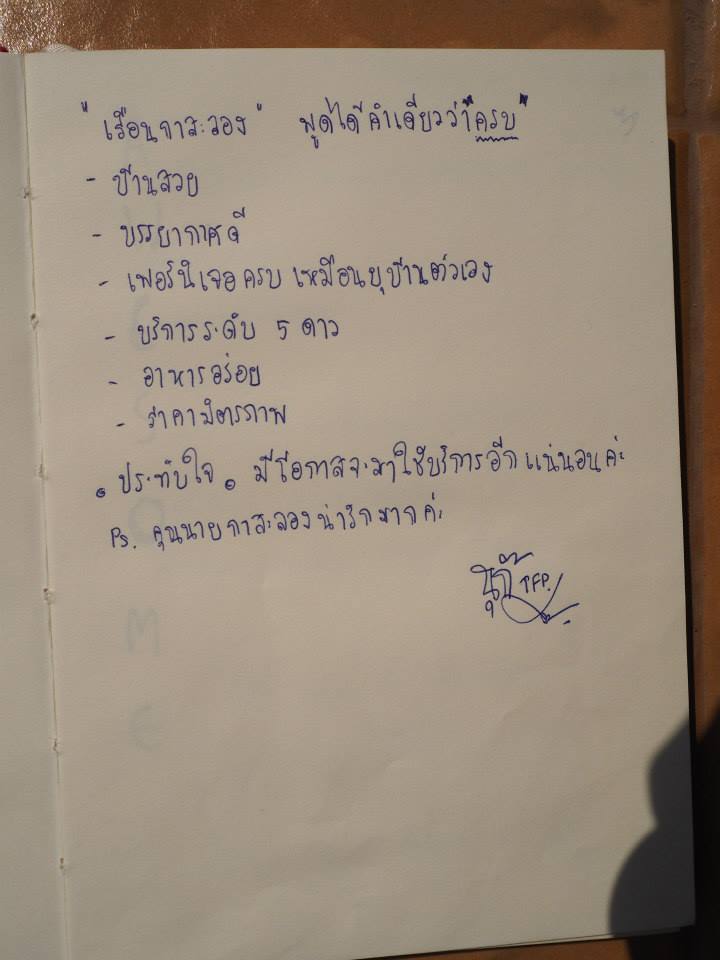 "เรือนกาสะลอง" พูดได้คำเดียวว่า "ครบ"
- บ้านสวย
- บรรยากาศดี
- เฟอร์นิเจอครบ เหมือนยุบ้านตัวเอง
- บริการระดับ 5 ดาว
- อาหารอร่อย
- ราคามิตรภาพ
ประทับใจ มีโอกาสจะมาใช้บริการอีกแน่นอนค่ะ
Ps. คุณนายกาสะลองน่ารักมากค่ะ
TFP.